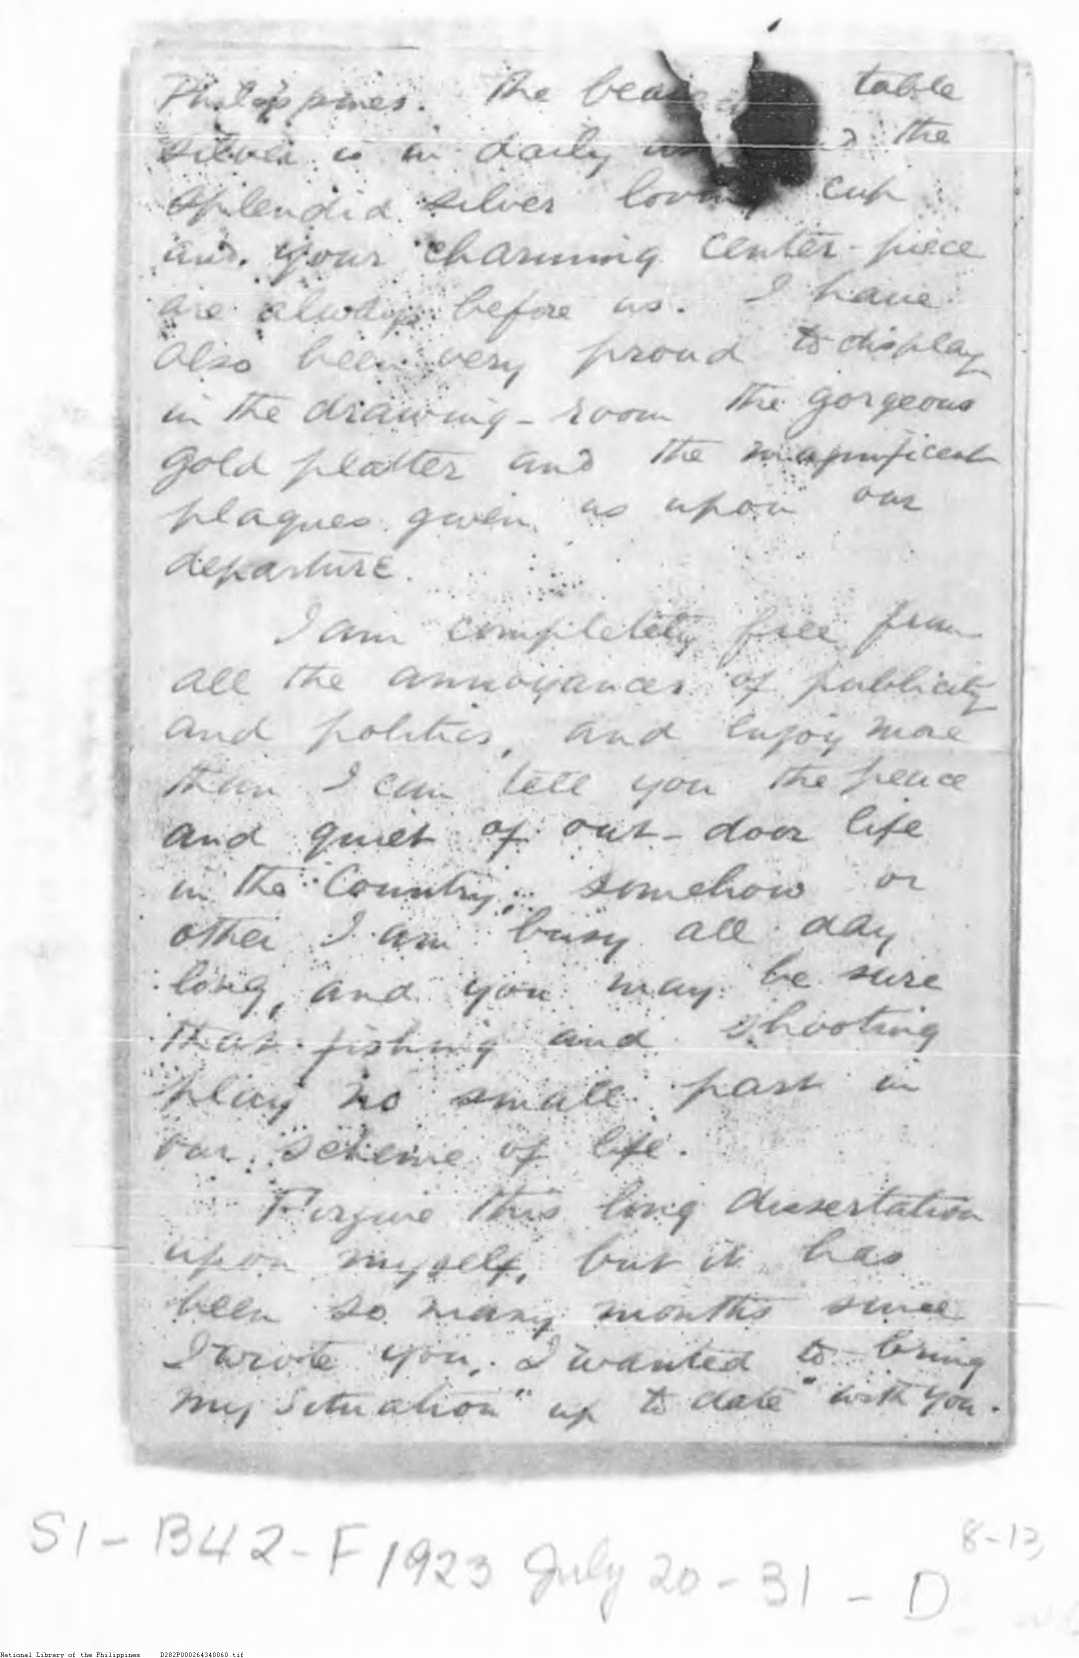 Philippines. The table
silver is in daily the
splendid silver loving cup
and your charming center-piece
are always before us. I have
also been very proud to display
in the drawing-room the gorgeous
gold platter and the magnificent
plaques given us upon our
departure.
I am completely free from
all the annoyances of publicity
and politics, and enjoy more
than I can tell you the peace
and quiet of out-door life
in the Country; somehow or
other I am busy all day
long, and you may be sure
that fishing and shooting
play no small part in
our scheme of life.
Forgive this long dissertation
upon myself, but it has
been so many months since
I wrote you, I wanted to bring
my situation "up to date" with you.
S1-B42-F1923 July 20-31-D
8-13,
National Library of the Philippines D282P000264340060.tif